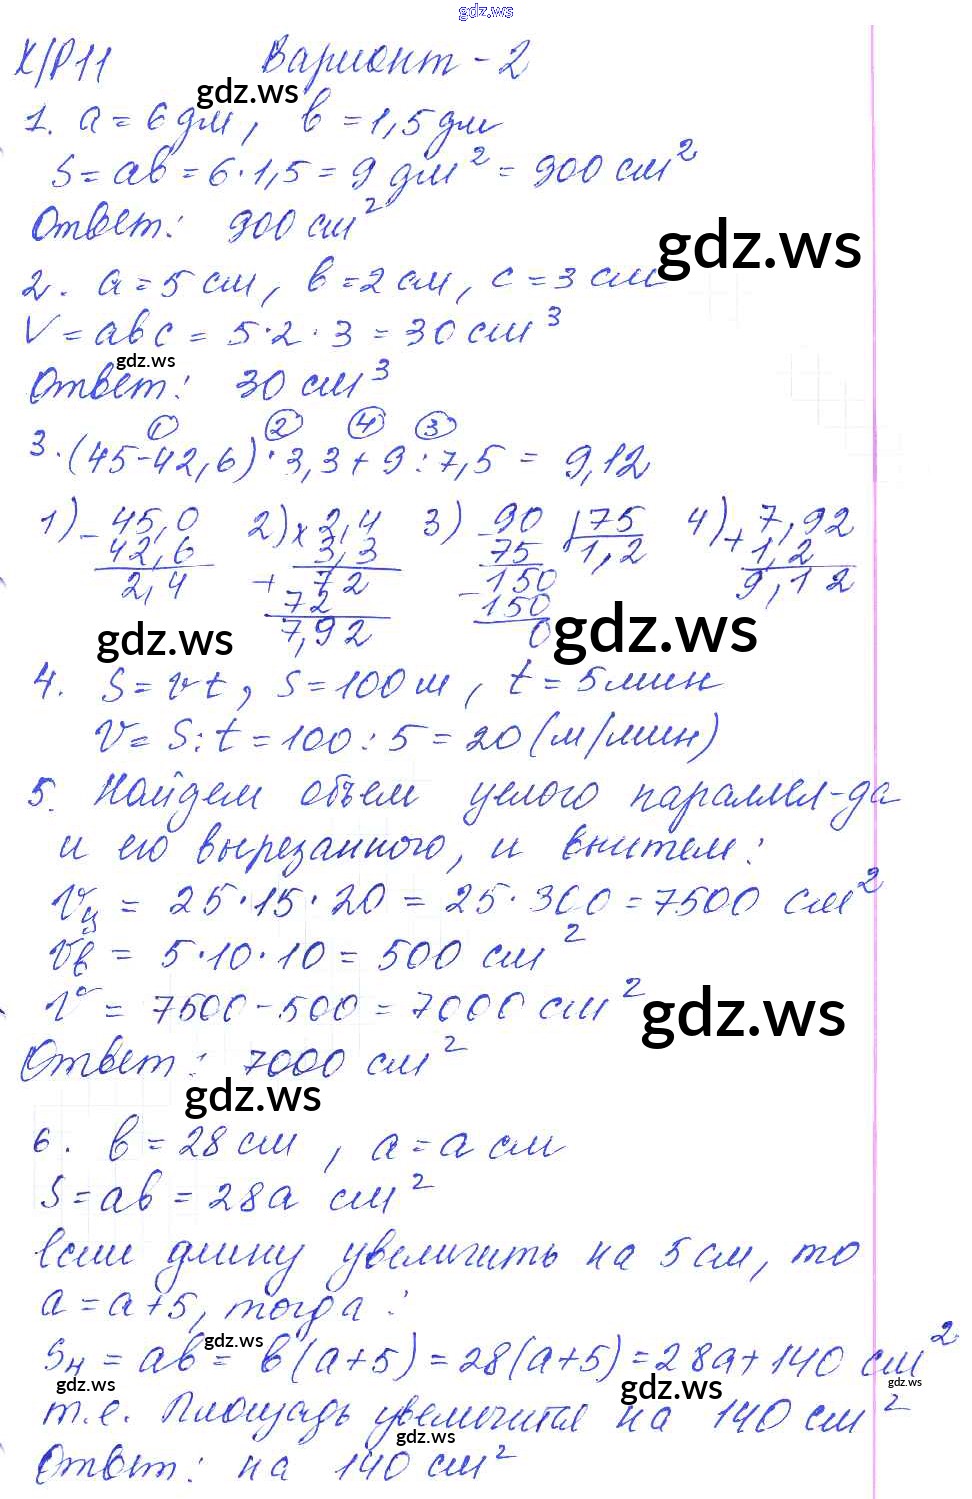 gdz.ws
К/Р11 Вариант - 2
gdz.ws
1. a = 6 дм, b = 1,5 дм
S = ab = 6 · 1,5 = 9 дм² = 900 см²
Ответ: 900 см²
gdz.ws
2. a = 5 см, b = 2 см, c = 3 см
V = abc = 5 · 2 · 3 = 30 см³
gdz.ws
Ответ: 30 см³
① ② ④ ③
3. (45 - 42,6) · 3,3 + 9 : 7,5 = 9,12
1) - 45,0 2) x 2,4 3) - 90 | 75 4) + 7,92
42,6 3,3 75 1,2 1,2
2,4 + 72 - 150 9,12
72 150
7,92 0
gdz.ws gdz.ws
4. S = vt, S = 100 м, t = 5 мин
V = S : t = 100 : 5 = 20 (м/мин)
5. Найдем объем целого параллел-да
и его вырезанного, и внитем:
Vц = 25 · 15 · 20 = 25 · 300 = 7500 см²
Vв = 5 · 10 · 10 = 500 см²
V = 7500 - 500 = 7000 см²
gdz.ws
Ответ: 7000 см²
gdz.ws
6. b = 28 см, a = a см
S = ab = 28a см²
Если длину увеличить на 5 см, то
a = a + 5, тогда:
gdz.ws
Sн = ab = b(a + 5) = 28(a + 5) = 28a + 140 см²
gdz.ws gdz.ws gdz.ws
т.е. Площадь увеличится на 140 см²
gdz.ws
Ответ: на 140 см²